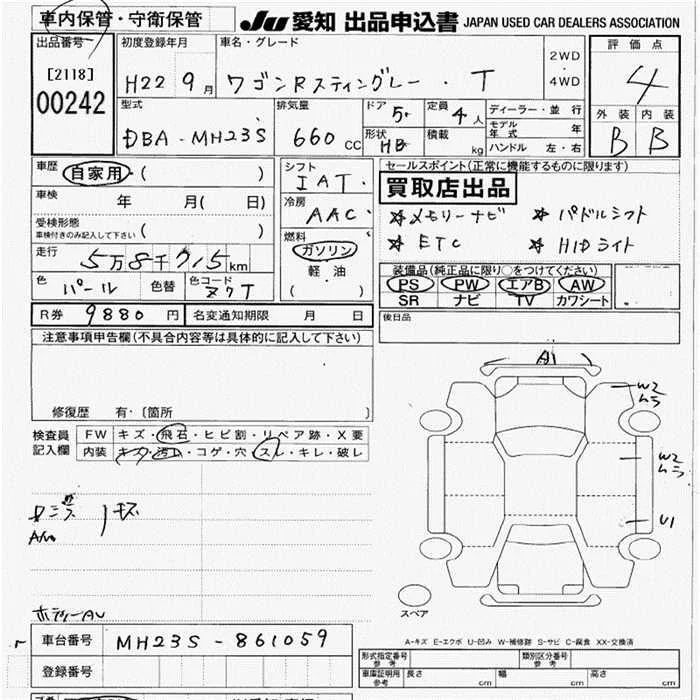 車内保管・守衛保管
JU 愛知 出品申込書 JAPAN USED CAR DEALERS ASSOCIATION
出品番号 初度登録年月 車名・グレード 2WD・4WD 評価点
[2118] H22 9月 ワゴンRスティングレー・T 4
00242
型式 排気量 ドア 5 定員 4人 ディーラー・並行 外装 内装
DBA-MH23S 660cc 形状 HB 積載 kg モデル年式 年 B B
ハンドル 左・右
車歴 自家用・( ) シフト IAT セールスポイント(正常に機能するものに限ります)
車検 年 月( 日) 冷房 AAC 買取店出品
受検形態 ( ) ☆メモリーナビ ☆パドルシフト
車検付きのみ記入して下さい 燃料 ガソリン ☆ETC ☆HIDライト
走行 5万8千715km 軽油 装備品(純正品に限り○をつけてください)
色 パール 色替 色コード Z7T ( ) PS PW エアB AW
SR ナビ TV カワシート
R券 9880円 名変通知期限 月 日 後日品
注意事項申告欄(不具合内容等は具体的に記入して下さい)
修復歴 有・〔箇所 〕
検査員 FW キズ・飛石・ヒビ割・リペア跡・X要
記入欄 内装 キズ・汚レ・コゲ・穴・スレ・キレ・破レ
A1
W2
ムラ
W2
ムラ
U1
スペア
A-キズ E-エクボ U-凹み W-補修跡 S-サビ C-腐食 XX-交換済
車台番号 MH23S-861059
登録番号
形式指定番号 参考 類別区分番号 参考
車庫証明用 参考 長さ cm 幅 cm 高さ cm